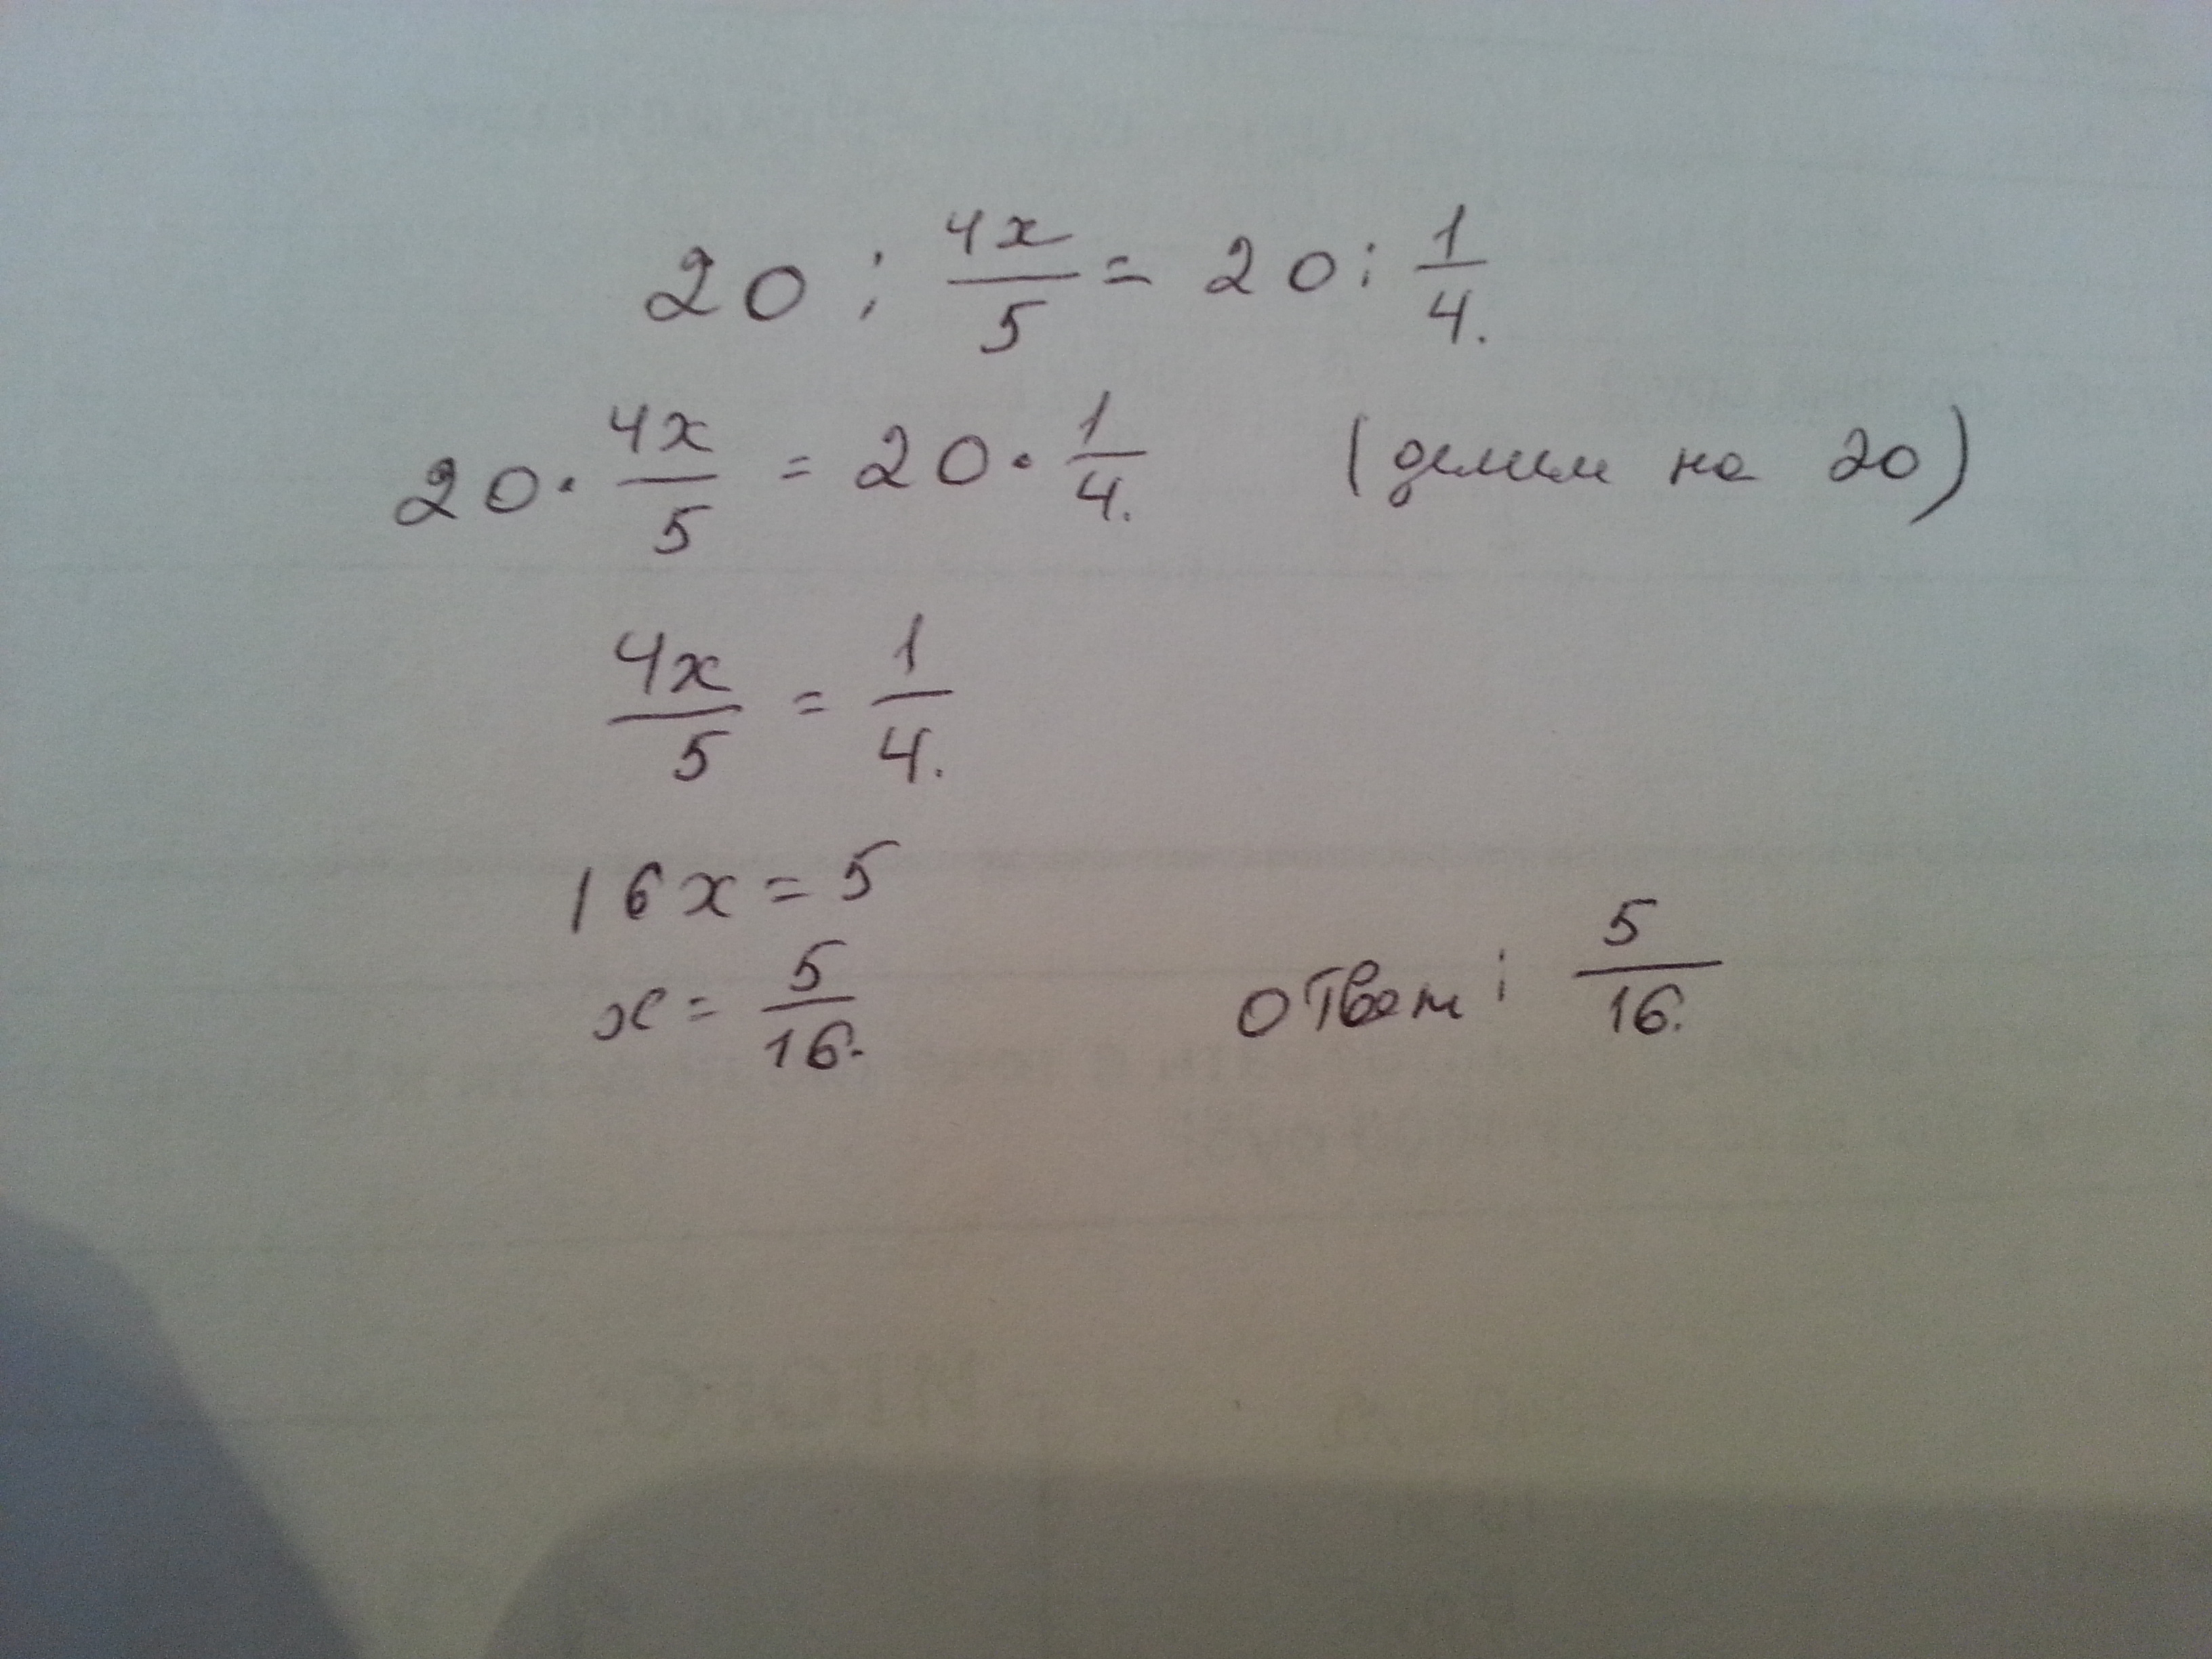 20 : 4x/5 = 20 : 1/4.
20 · 4x/5 = 20 · 1/4. (делим на 20)
4x/5 = 1/4.
16x = 5
x = 5/16. ответ : 5/16.